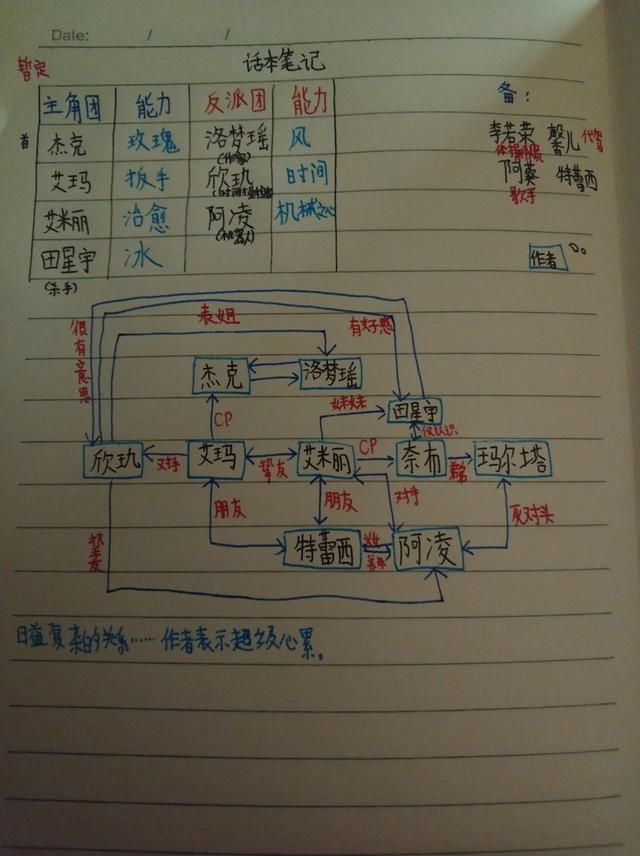 Date: / /
话本笔记
暂定
主角团 能力 反派团 能力
备：
首 杰克 玫瑰 洛梦瑶 风
李若荣 馨儿 代驾
(作家)
艾玛 扳手 欣玖 时间
阿葵 特蕾西
歌手
艾米丽 治愈 阿凌 机械之心
(机器人)
田星宇 冰
作者
(杀手)
很有意思
表姐
有好感
杰克 洛梦瑶
妹妹 田星宇
CP
仅认识
欣玖 对手 艾玛 挚友 艾米丽 CP 奈布 玛尔塔
朋友 朋友 对手 死对头
特蕾西 阿凌
日益复杂的关系…… 作者表示超级心累。